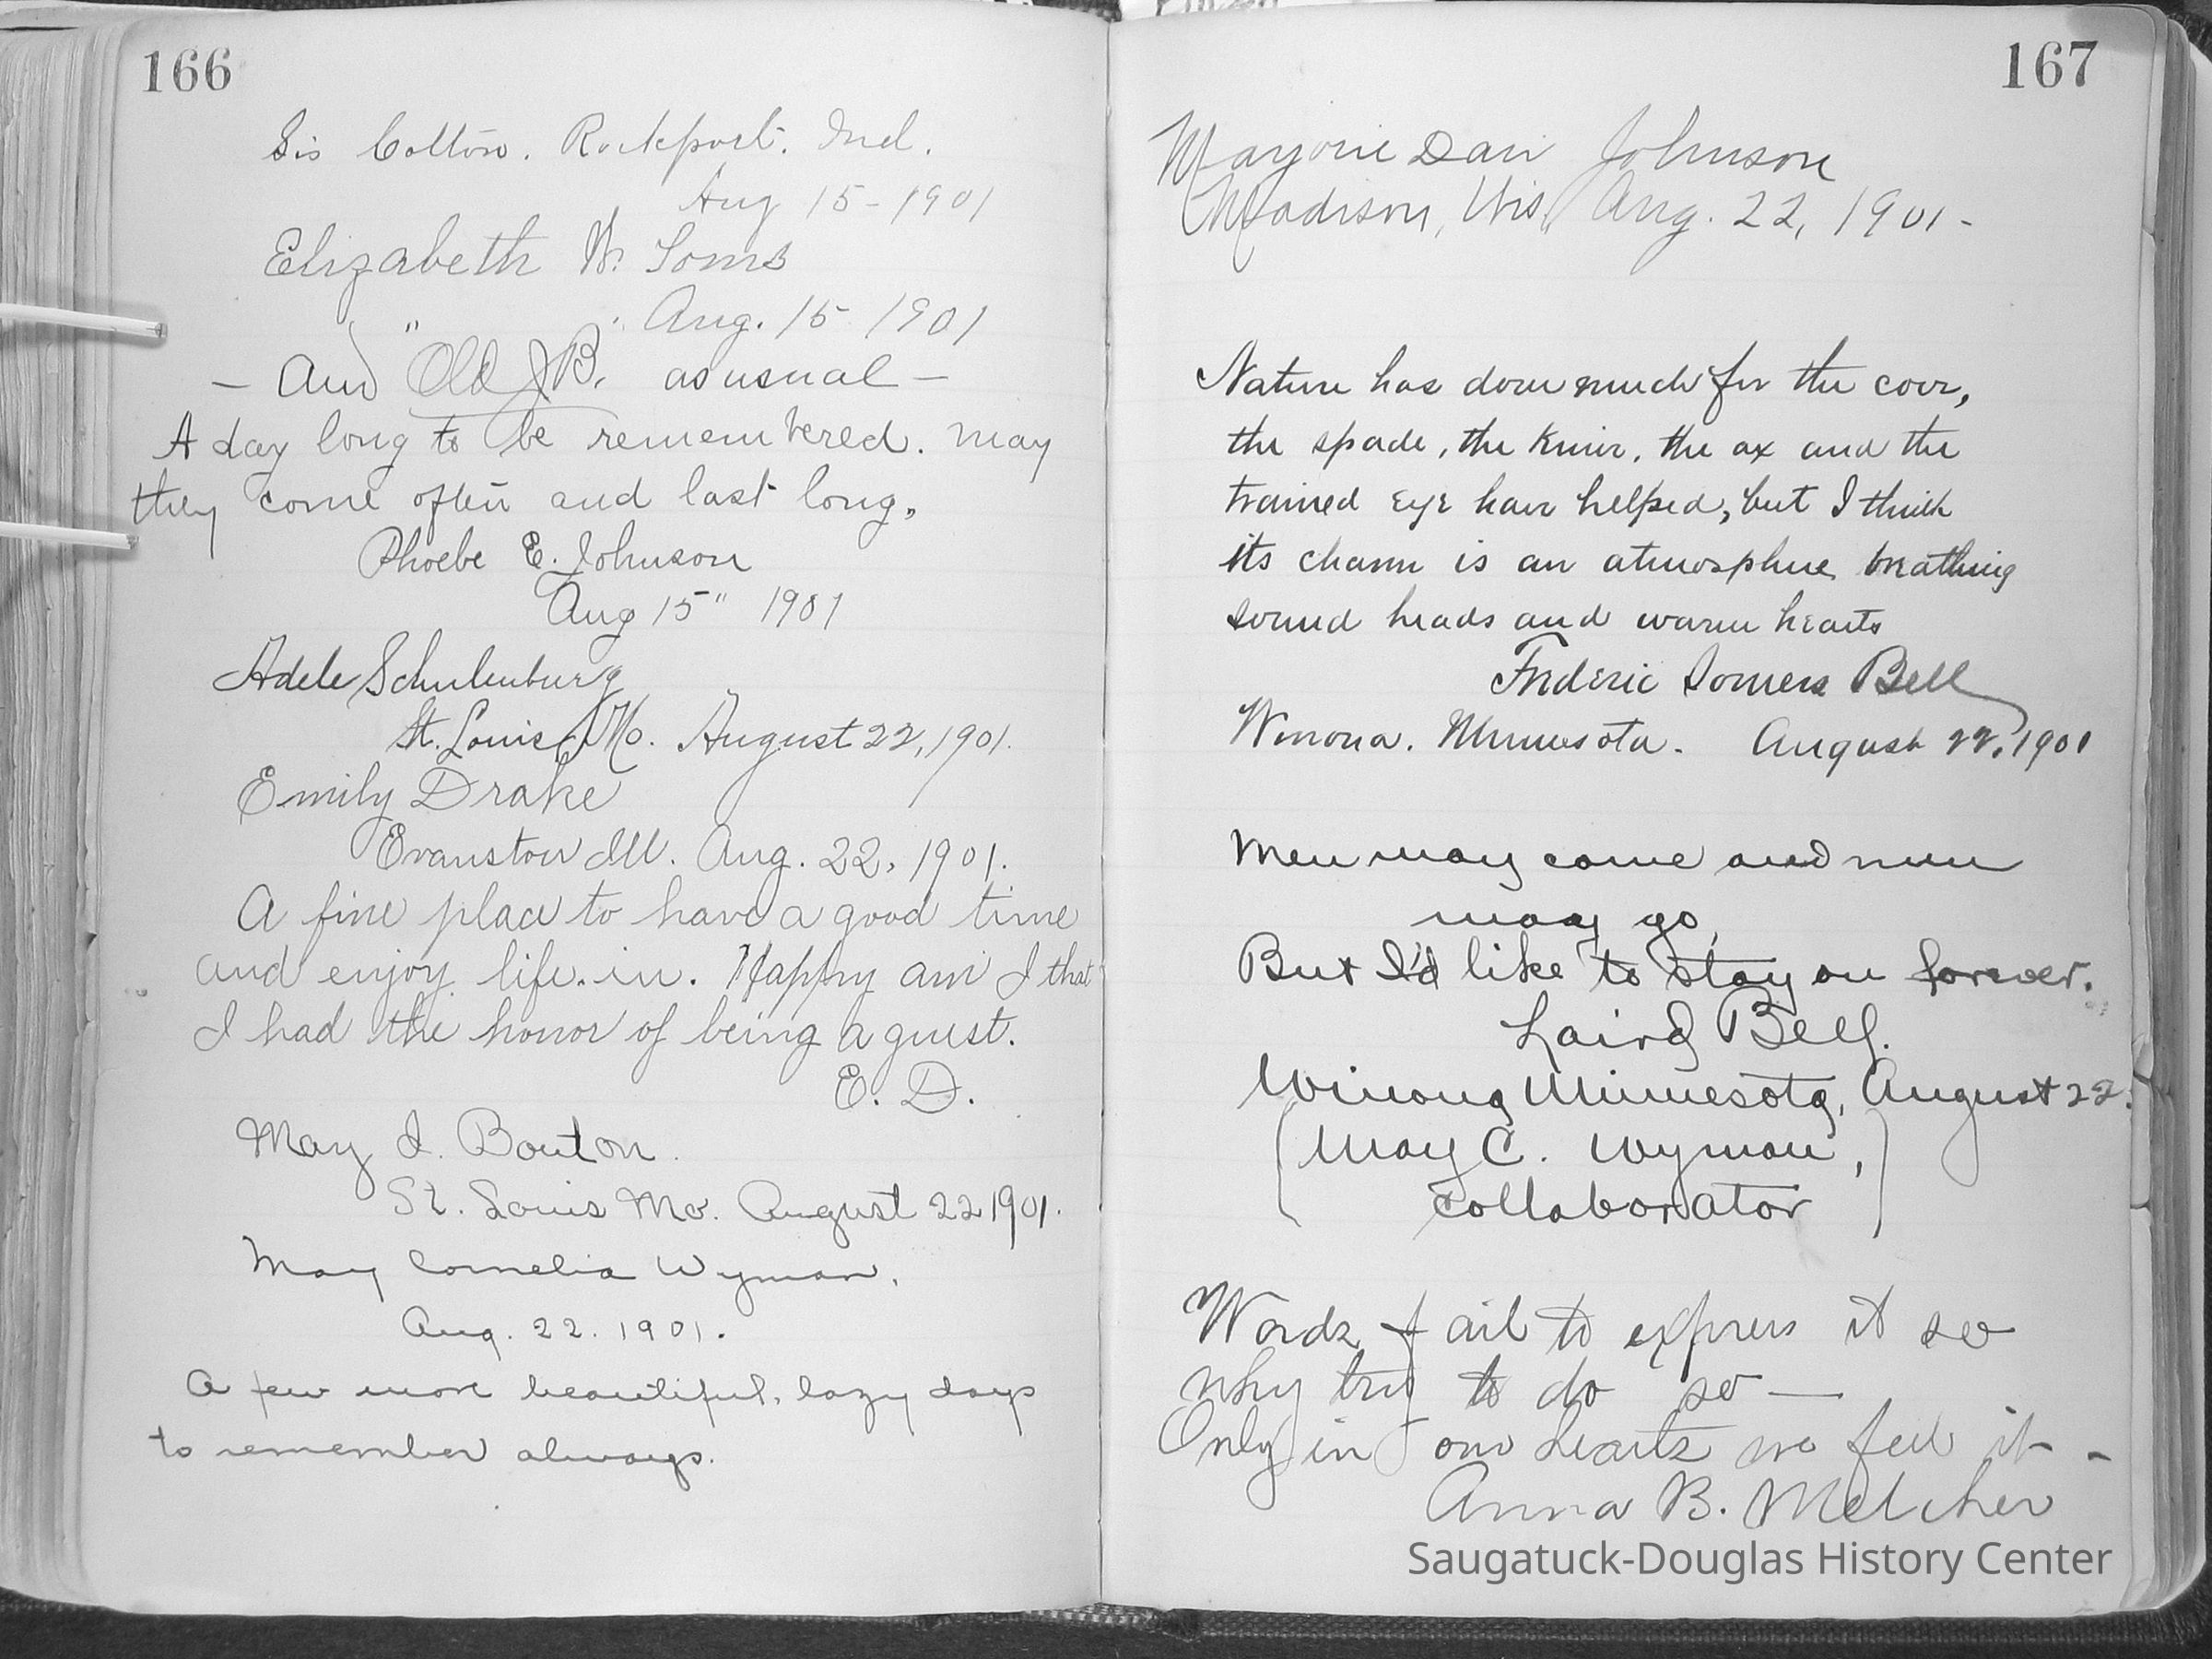 166
Sis Cotton. Rockport. Ind.
Aug 15-1901
Elizabeth W. Toms
" " Aug. 15 1901
— And Old J B. as usual —
A day long to be remembered. May
they come often and last long.
Phoebe E. Johnson
Aug 15" 1901
Adele Schulenburg
St. Louis, Mo. August 22, 1901.
Emily Drake
Evanston Ill. Aug. 22, 1901.
A fine place to have a good time
and enjoy life in. Happy am I that
I had the honor of being a guest.
E. D.
May I. Bouton.
St. Louis Mo. August 22 1901.
May Cornelia Wyman.
Aug. 22. 1901.
A few more beautiful, lazy days
to remember always.
167
Marjorie Johnson
Madison, Wis. Aug. 22, 1901-
Nature has done much for the cover,
the spade, the knife, the ax and the
trained eye have helped, but I think
its charm is an atmosphere breathing
sound heads and warm hearts
Frederic Somers Bell
Winona. Minnesota. August 22, 1901
Men may come and men
may go,
But I'd like to stay on forever.
Laird Bell.
Winona Minnesota, August 22.
(May C. Wyman,)
collaborator
Words fail to express it so
why try to do so —
Only in our hearts we feel it -
Anna B. Melcher
Saugatuck-Douglas History Center